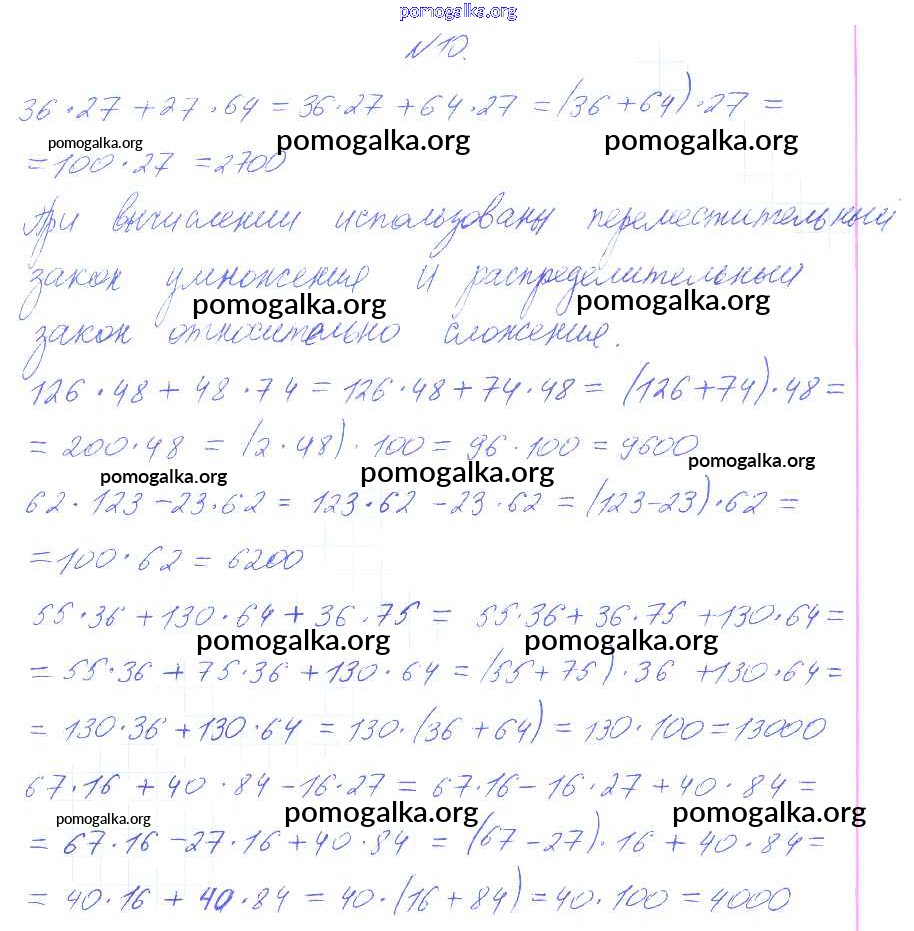 pomogalka.org
№10.
36·27 + 27·64 = 36·27 + 64·27 = (36 + 64)·27 =
pomogalka.org pomogalka.org pomogalka.org
= 100·27 = 2700
При вычислении использованы переместительный
закон умножения и распределительный
pomogalka.org pomogalka.org
закон относительно сложения.
126·48 + 48·74 = 126·48 + 74·48 = (126 + 74)·48 =
= 200·48 = (2·48)·100 = 96·100 = 9600
pomogalka.org pomogalka.org pomogalka.org
62·123 - 23·62 = 123·62 - 23·62 = (123 - 23)·62 =
= 100·62 = 6200
55·36 + 130·64 + 36·75 = 55·36 + 36·75 + 130·64 =
pomogalka.org pomogalka.org
= 55·36 + 75·36 + 130·64 = (55 + 75)·36 + 130·64 =
= 130·36 + 130·64 = 130·(36 + 64) = 130·100 = 13000
67·16 + 40·84 - 16·27 = 67·16 - 16·27 + 40·84 =
pomogalka.org pomogalka.org pomogalka.org
= 67·16 - 27·16 + 40·84 = (67 - 27)·16 + 40·84 =
= 40·16 + 40·84 = 40·(16 + 84) = 40·100 = 4000